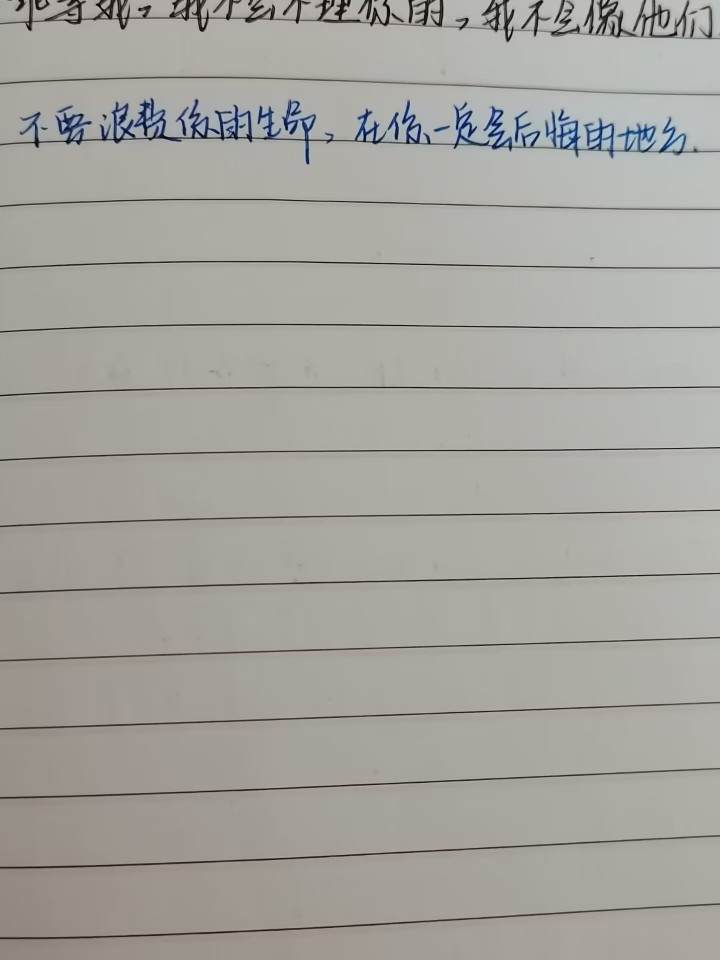 等我,我不会不理你的,我不会像他们
不要浪费你的生命,在你一定会后悔的地方.